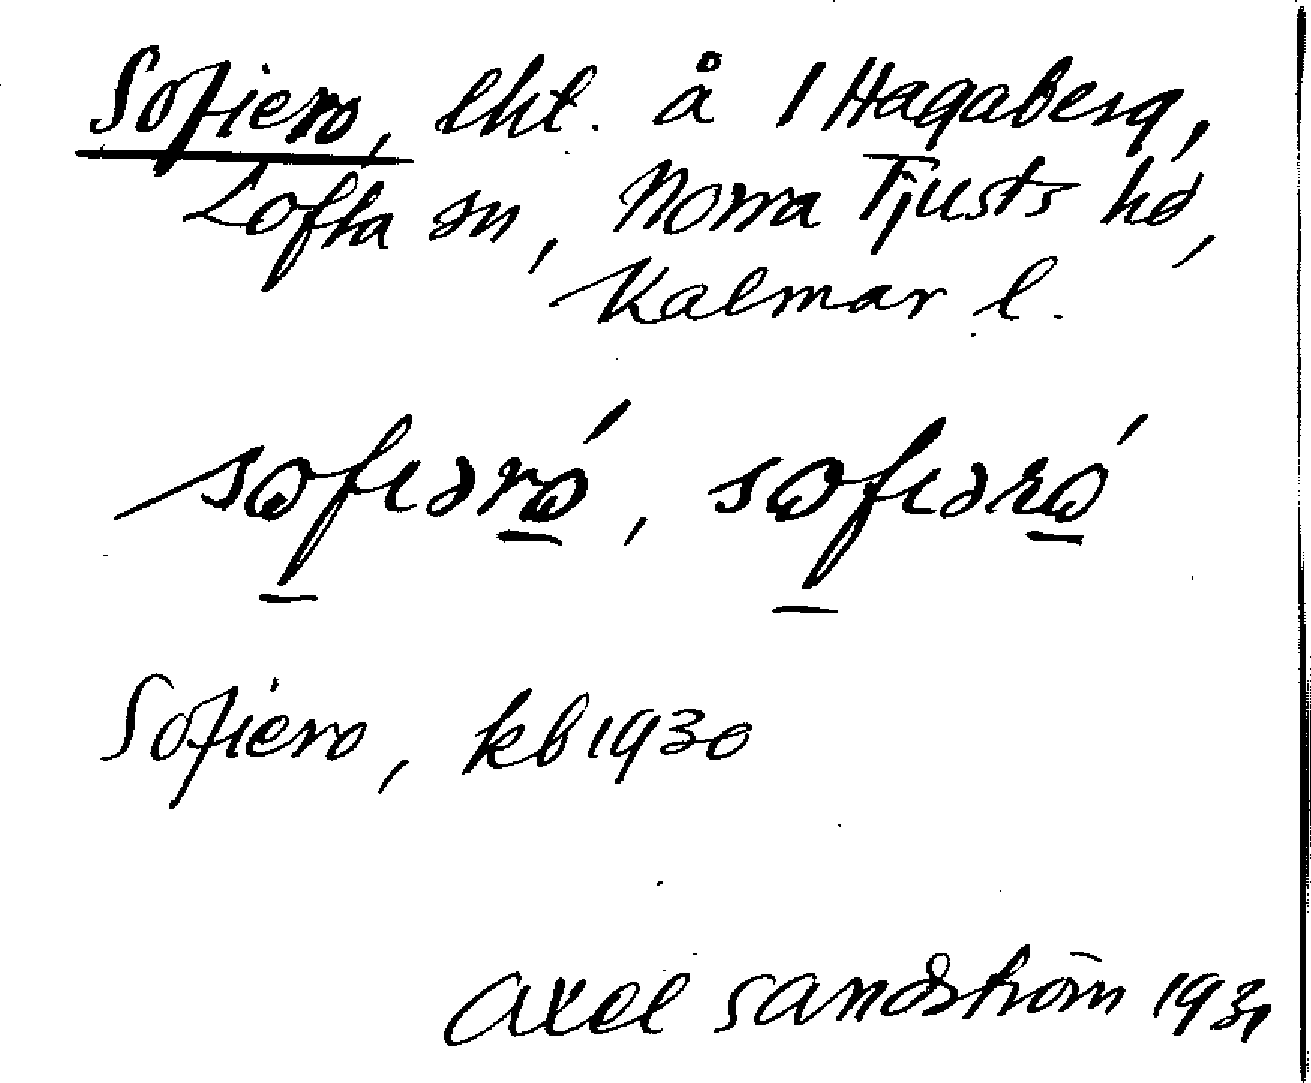 Sofiero, lht. å 1 Hagaberg,
Lofta sn, Norra Tjusts hd,
Kalmar l.
sɷfiərɷ́, sɷfiərɷ́
Sofiero, kb 1930
Axel Sandström 1931